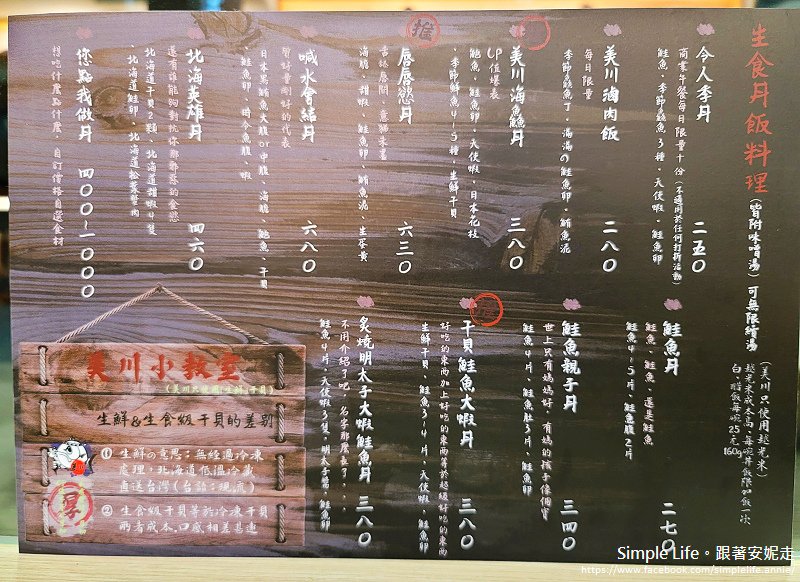 生食丼飯料理
(皆附味噌湯) 可無限續湯
(美川只使用越光米)
越光米成本高、每碗丼飯限加飯一次
白醋飯每碗25元160g
令人季丼 二五〇
商業午餐每日限量十份(不適用於任何打折活動)
鮭魚、季節鮮魚3種、天使蝦、鮭魚卵
美川滷肉飯 二八〇
每日限量
季節鮮魚丁、滿滿の鮭魚卵、鮪魚泥
推
美川海鱻丼 三八〇
CP值爆表
鮭魚、鮑魚、鮭魚卵、天使蝦、日本花枝
、季節鮮魚4、5種、生鮮干貝
唇唇慾丼 六三〇
舌舔唇間、意猶未盡
海膽、甜蝦、鮭魚卵、鮪魚泥、生蛋黃
喊水會結丼 六八〇
腎好量剛好的代表
日本黑鮪魚大腹or中腹、海膽、鮑魚、干貝
鮭魚卵、時令魚腹、蝦
北海英雄丼 四六〇
還有誰能夠對抗你那邪惡的食慾
北海道干貝2顆、北海道甜蝦4隻
、北海道鮭卵、北海道松葉蟹肉
你點我做丼 四〇〇~一〇〇〇
想吃什麼點什麼，自訂價格自選食材
鮭魚丼 二七〇
鮭魚、鮭魚、還是鮭魚
鮭魚4~5片、鮭魚腹2片
鮭魚親子丼 三四〇
世上只有媽媽好，有媽的孩子像個寶
鮭魚4片、炙燒鮭魚3片、鮭魚卵
干貝鮭魚大蝦丼 三八〇
好吃的東西加上好吃的東西等於超級好吃的東西
生鮮干貝、鮭魚3~4片、天使蝦、鮭魚卵
炙燒明太子大蝦鮭魚丼 三八〇
不用介紹了吧，名字那麼長了...
鮭魚4片、天使蝦3隻、明太子醬、鮭魚卵
美川小教室
(美川只使用"生鮮"干貝)
生鮮&生食級干貝的差別
① 生鮮の意思：無經過冷凍
處理，北海道低溫冷藏
直送台灣(台語：現流)
② 生食級干貝等於冷凍干貝
兩者成本.口感.相差甚遠
Simple Life。跟著安妮走
https://www.facebook.com/simplelife.annie/